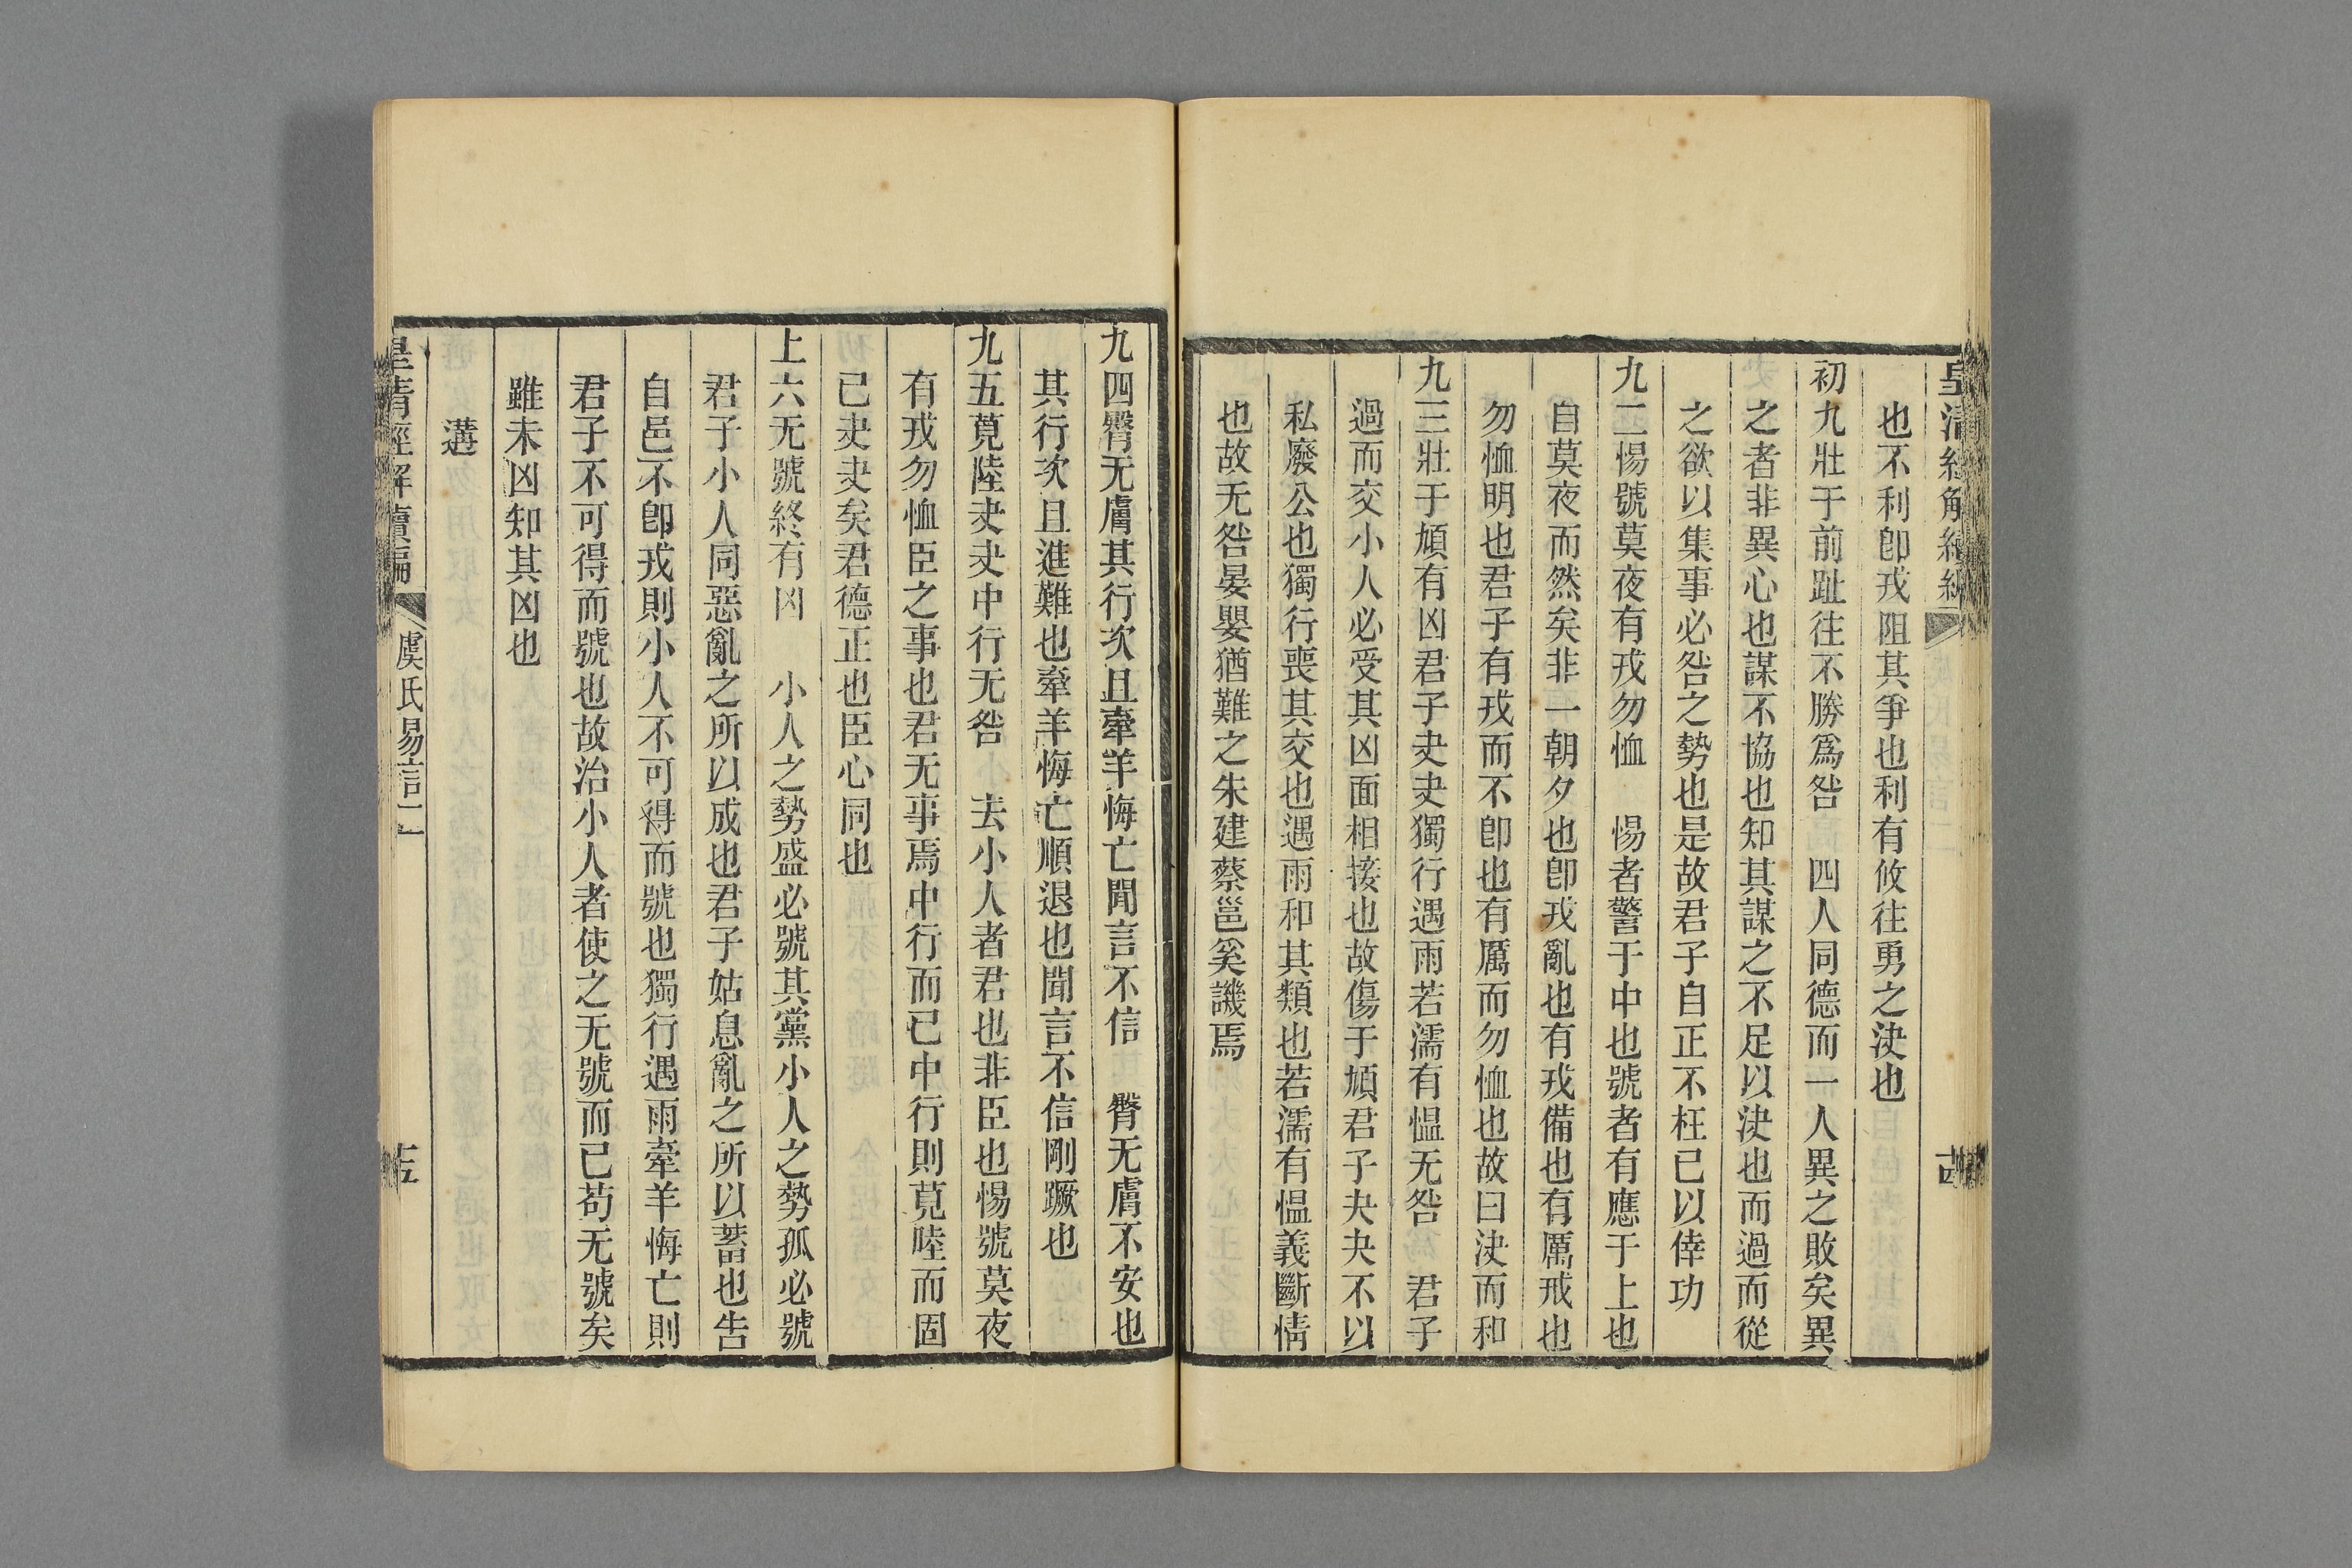 皇清經解續編
也不利卽戎阻其爭也利有攸往勇之決也
初九壯于前趾往不勝爲咎　四人同德而一人異之敗矣異
之者非異心也謀不協也知其謀之不足以決也而過而從
之欲以集事必咎之勢也是故君子自正不枉已以倖功
九二惕號莫夜有戎勿恤　惕者警于中也號者有應于上也
自莫夜而然矣非一朝夕也卽戎亂也有戎備也有厲戒也
勿恤明也君子有戎而不卽也有厲而勿恤也故曰決而和
九三壯于頄有凶君子夬夬獨行遇雨若濡有愠无咎　君子
過而交小人必受其凶面相接也故傷于頄君子夬夬不以
私廢公也獨行喪其交也遇雨和其類也若濡有愠義斷情
也故无咎晏嬰猶難之朱建蔡邕奚譏焉
九四臀无膚其行次且牽羊悔亡聞言不信　臀无膚不安也
其行次且進難也牽羊悔亡順退也聞言不信剛蹶也
九五莧陸夬夬中行无咎　去小人者君也非臣也惕號莫夜
有戎勿恤臣之事也君无事焉中行而已中行則莧陸而固
已夬夬矣君德正也臣心同也
上六无號終有凶　小人之勢盛必號其黨小人之勢孤必號
君子小人同惡亂之所以成也君子姑息亂之所以蓄也告
自邑不卽戎則小人不可得而號也獨行遇雨牽羊悔亡則
君子不可得而號也故治小人者使之无號而已苟无號矣
雖未凶知其凶也
遘
皇清經解續編
虞氏易言二